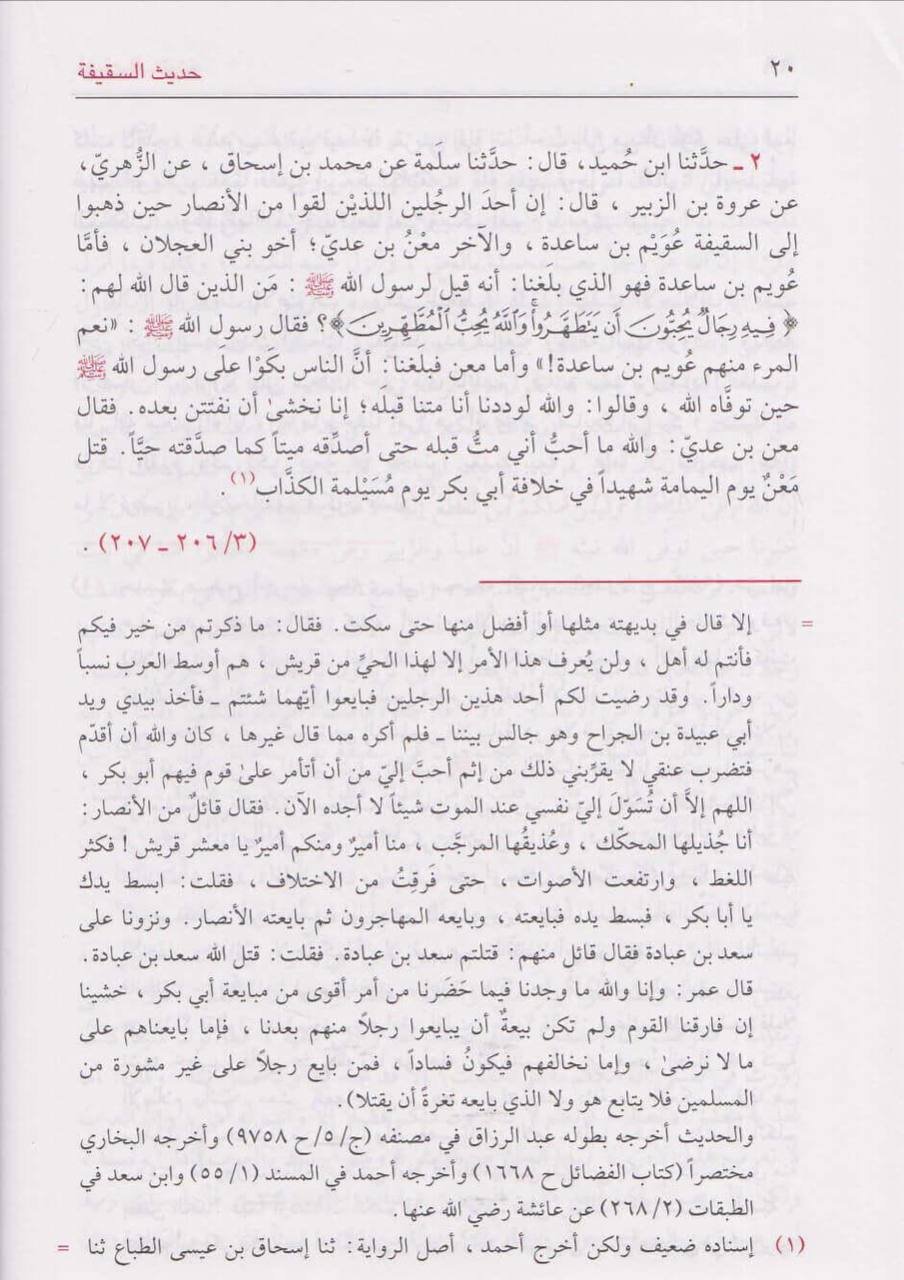 ٢٠ حديث السقيفة
٢ ـ حدَّثنا ابن حُميد، قال: حدَّثنا سلمة عن محمد بن إسحاق ، عن الزُّهريّ،
عن عروة بن الزبير ، قال: إن أحدَ الرجُلين اللذيْن لقوا من الأنصار حين ذهبوا
إلى السقيفة عُوَيْم بن ساعدة ، والآخر معْنُ بن عديّ؛ أخو بني العجلان ، فأمَّا
عُويم بن ساعدة فهو الذي بلغنا: أنه قيل لرسول الله ﷺ : مَن الذين قال الله لهم:
﴿ فِيهِ رِجَالٌ يُحِبُّونَ أَن يَتَطَهَّرُوا۟ وَٱللَّهُ يُحِبُّ ٱلْمُطَّهِّرِينَ﴾؟ فقال رسول الله ﷺ : «نعم
المرء منهم عُويم بن ساعدة!» وأما معن فبلغنا: أنَّ الناس بكَوْا على رسول الله ﷺ
حين توفَّاه الله ، وقالوا: والله لوددنا أنا متنا قبله؛ إنا نخشىٰ أن نفتتن بعده. فقال
معن بن عديّ: والله ما أحبُّ أني متُّ قبله حتى أصدِّقه ميتاً كما صدَّقته حيَّاً. قتل
مَعْنٌ يوم اليمامة شهيداً في خلافة أبي بكر يوم مُسَيْلمة الكذَّاب(١).
(٣/ ٢٠٦ ـ ٢٠٧) .
= إلا قال في بديهته مثلها أو أفضل منها حتى سكت. فقال: ما ذكرتم من خير فيكم
فأنتم له أهل ، ولن يُعرف هذا الأمر إلا لهذا الحيِّ من قريش ، هم أوسط العرب نسباً
وداراً. وقد رضيت لكم أحد هذين الرجلين فبايعوا أيّهما شئتم ـ فأخذ بيدي ويد
أبي عبيدة بن الجراح وهو جالس بيننا ـ فلم أكره مما قال غيرها ، كان والله أن أقدّم
فتضرب عنقي لا يقرِّبني ذلك من إثم أحبَّ إليّ من أن أتأمر علىٰ قوم فيهم أبو بكر ،
اللهم إلاَّ أن تُسَوّلَ إليّ نفسي عند الموت شيئاً لا أجده الآن. فقال قائلٌ من الأنصار:
أنا جُذيلها المحكّك ، وعُذيقُها المرجَّب ، منا أميرٌ ومنكم أميرٌ يا معشر قريش ! فكثر
اللغط ، وارتفعت الأصوات ، حتى فَرِقِتُ من الاختلاف ، فقلت: ابسط يدك
يا أبا بكر ، فبسط يده فبايعته ، وبايعه المهاجرون ثم بايعته الأنصار. ونزونا على
سعد بن عبادة فقال قائل منهم: قتلتم سعد بن عبادة. فقلت: قتل الله سعد بن عبادة.
قال عمر: وإنا والله ما وجدنا فيما حَضَرنا من أمر أقوى من مبايعة أبي بكر ، خشينا
إن فارقنا القوم ولم تكن بيعةٌ أن يبايعوا رجلاً منهم بعدنا ، فإما بايعناهم على
ما لا نرضىٰ ، وإما نخالفهم فيكونُ فساداً ، فمن بايع رجلاً على غير مشورة من
المسلمين فلا يتابع هو ولا الذي بايعه تغرةً أن يقتلا).
والحديث أخرجه بطوله عبد الرزاق في مصنفه (ج/ ٥/ ح ٩٧٥٨) وأخرجه البخاري
مختصراً (كتاب الفضائل ح ١٦٦٨) وأخرجه أحمد في المسند (١/ ٥٥) وابن سعد في
الطبقات (٢/ ٢٦٨) عن عائشة رضي الله عنها.
(١) إسناده ضعيف ولكن أخرج أحمد ، أصل الرواية: ثنا إسحاق بن عيسى الطباع ثنا =